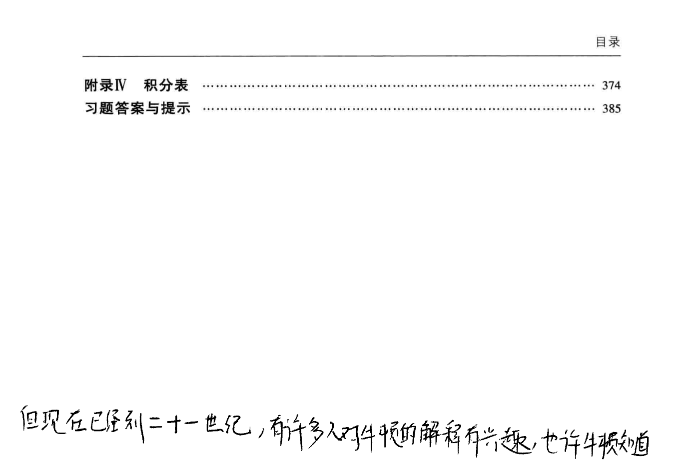 目录
附录Ⅳ 积分表 …………………………………………………………………… 374
习题答案与提示 …………………………………………………………………… 385
但现在已经到二十一世纪，有许多人对牛顿的解释有兴趣，也许牛顿知道